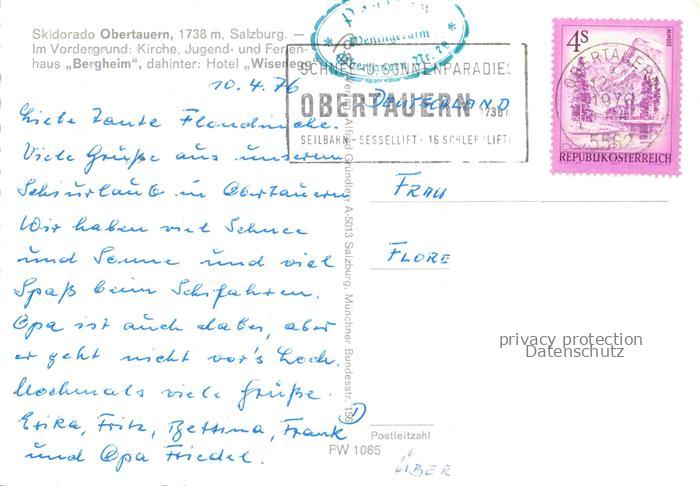 Skidorado Obertauern, 1738 m, Salzburg. –
Im Vordergrund: Kirche, Jugend- und Ferien-
haus „Bergheim", dahinter: Hotel „Wisenegg
10.4.76
Liebe Tante
Viele Grüße aus unserem
Schiurlaub in Obertauern
Wir haben viel Schnee
und Sonne und viel
Spaß beim Schifahren.
Opa ist auch dabei, aber
er geht nicht vor's Loch.
Nochmals viele Grüße.
Erika, Fritz, Bettina, Frank
und Opa Friedel.
SCHNEE- U. SONNENPARADIES
OBERTAUERN 1738m
SEILBAHN - SESSELLIFT - 16 SCHLEPPLIFTE
DEUTSCHLAND
4S
OBERTAUERN
5562
REPUBLIK ÖSTERREICH
FRAU
FLORE
privacy protection
Datenschutz
A-5013 Salzburg, Münchner Bundesstr.
D
Postleitzahl
FW 1065
ÜBER